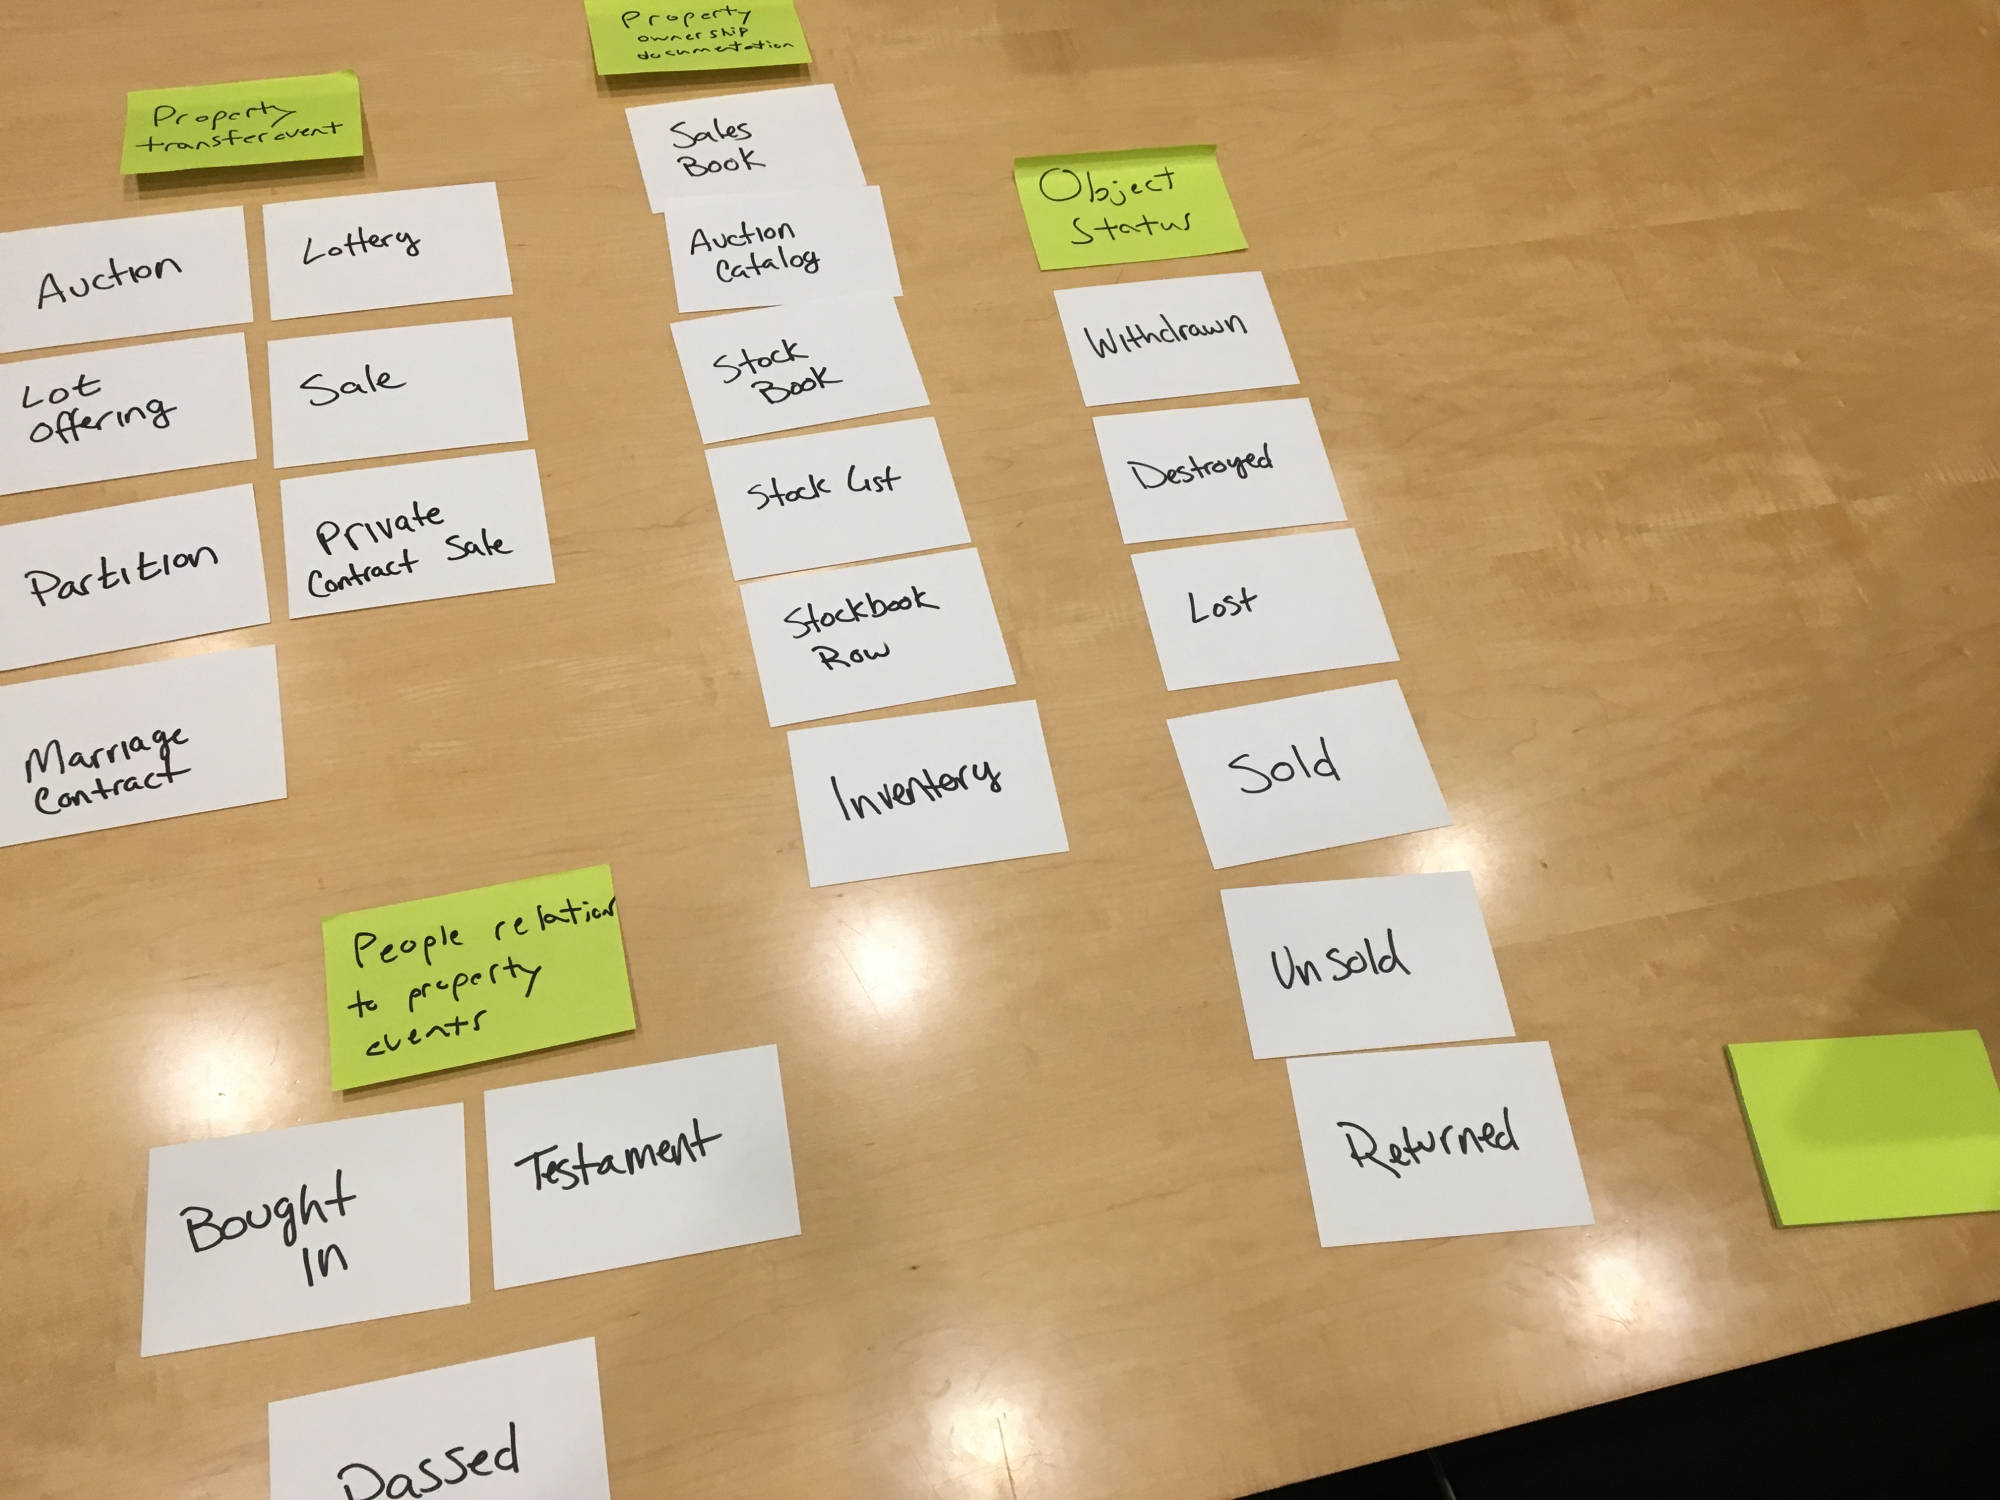 Property
transfer event
Auction
Lottery
Lot
offering
Sale
Partition
Private
Contract Sale
Marriage
Contract
Property
ownership
documentation
Sales
Book
Auction
Catalog
Stock
Book
Stock List
Stockbook
Row
Inventory
Object
Status
Withdrawn
Destroyed
Lost
Sold
Unsold
Returned
People relation
to property
events
Bought
In
Testament
Passed